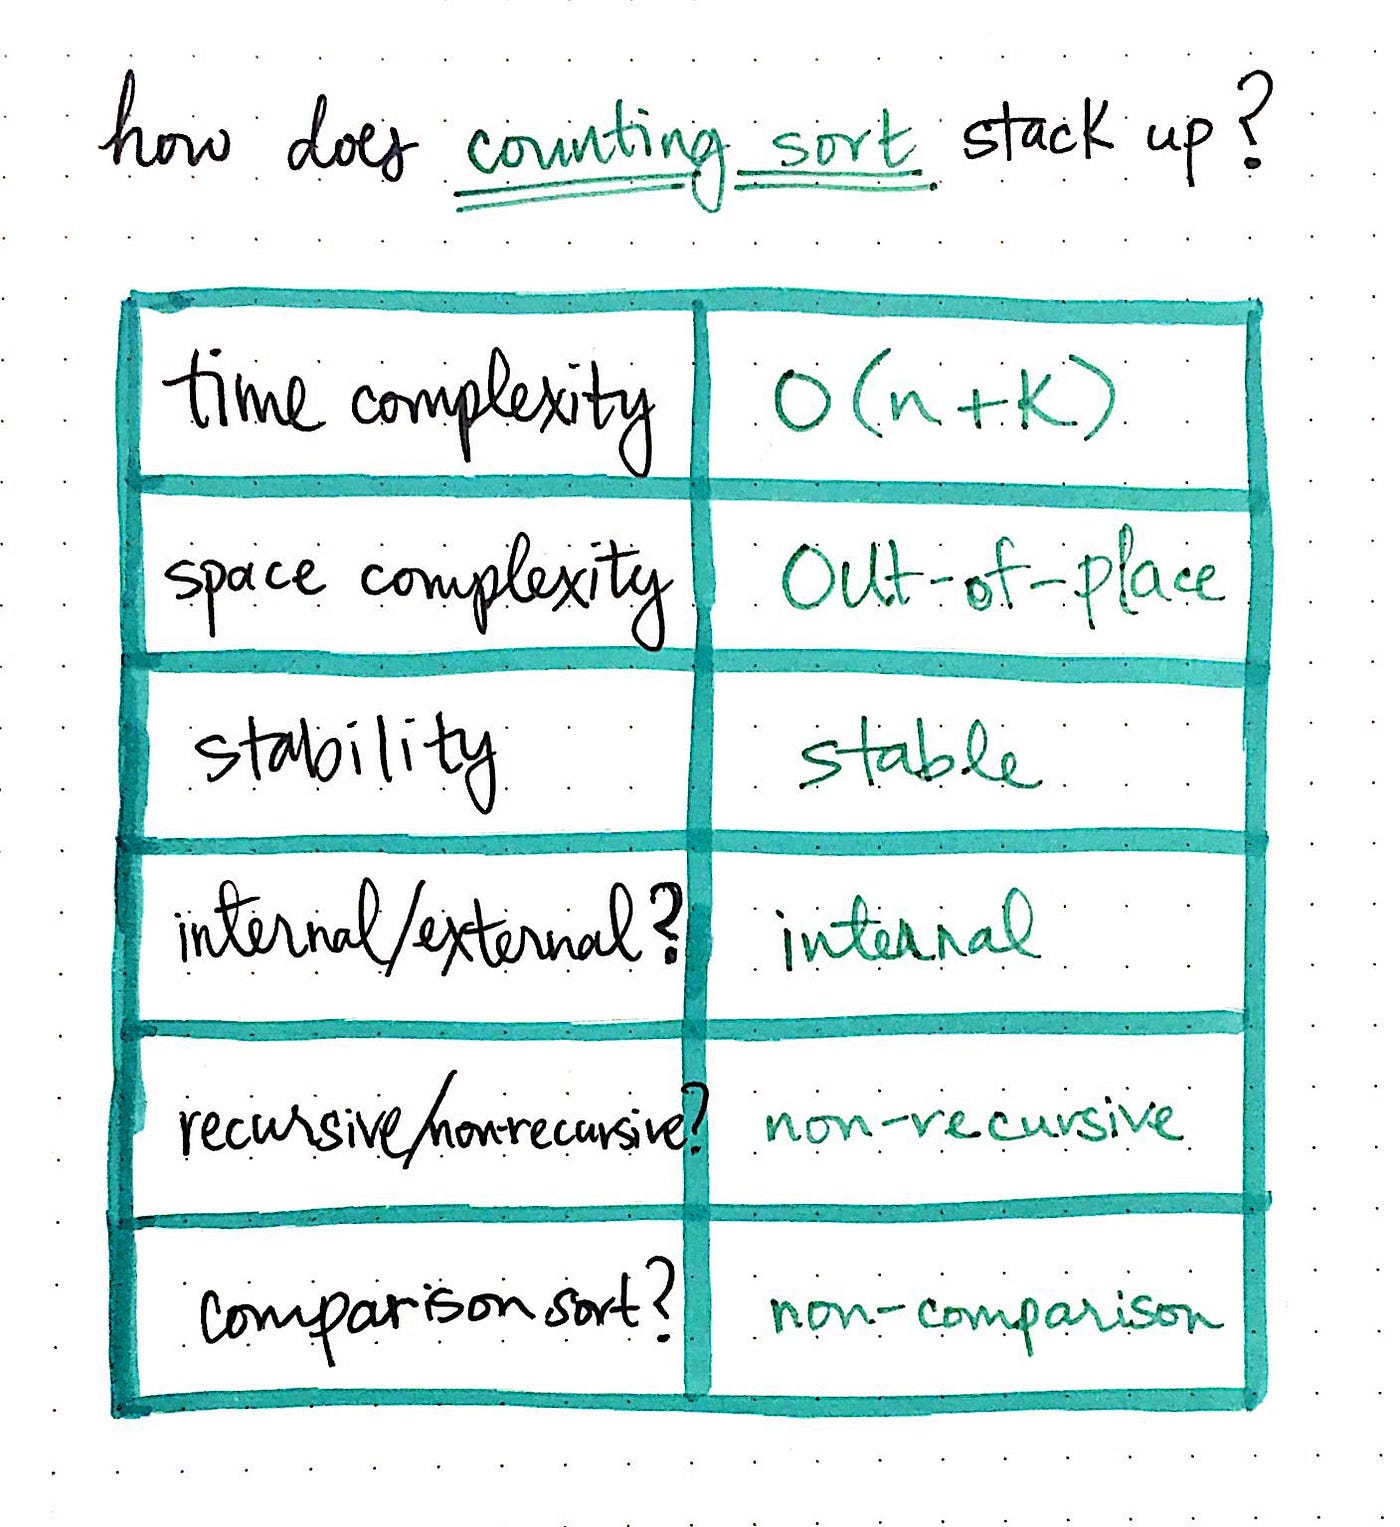 how does counting sort stack up?
time complexity O(n+k)
space complexity Out-of-place
stability stable
internal/external? internal
recursive/non-recursive? non-recursive
comparison sort? non-comparison